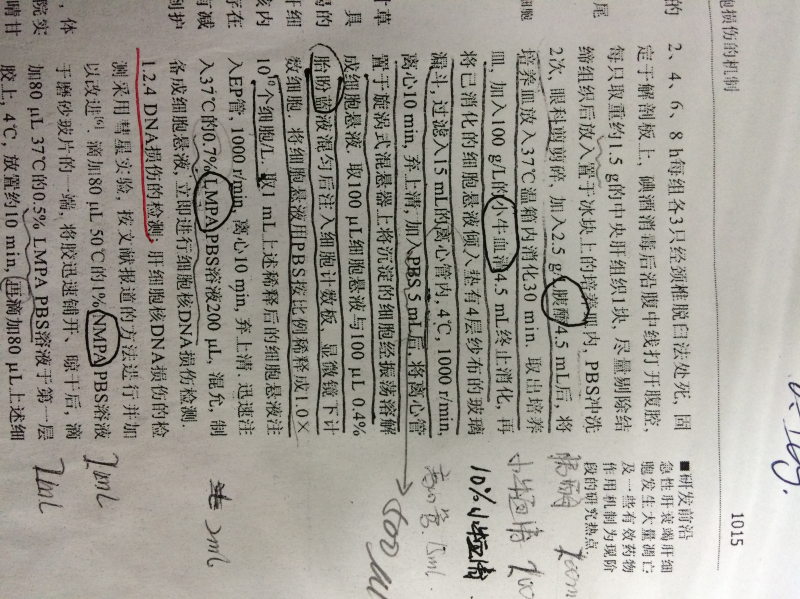 胞损伤的机制
1015
2、4、6、8 h每组各3只经颈椎脱臼法处死, 固
定于解剖板上, 碘酒消毒后沿腹中线打开腹腔,
每只取重约1.5 g的中央肝组织1块, 尽量剔除结
缔组织后放入置于冰块上的培养皿内, PBS冲洗
2次, 眼科剪剪碎, 加入2.5 g/L胰酶4.5 mL后, 将
培养皿放入37℃温箱内消化30 min, 取出培养
皿, 加入100 g/L的小牛血清4.5 mL终止消化, 再
将已消化的细胞悬液倾入垫有4层纱布的玻璃
漏斗, 过滤入15 mL的离心管内, 4℃, 1000 r/min,
离心10 min, 弃上清, 加入PBS 5 mL后, 将离心管
置于旋涡式混悬器上将沉淀的细胞经振荡溶解
成细胞悬液, 取100 μL细胞悬液与100 μL 0.4%
胎盼蓝液混匀后注入细胞计数板, 显微镜下计
数细胞, 将细胞悬液用PBS按比例稀释成1.0×
10⁹个细胞/L, 取1 mL上述稀释后的细胞悬液注
入EP管, 1000 r/min, 离心10 min, 弃上清, 迅速注
入37℃的0.7% LMPA PBS溶液200 μL, 混允, 制
备成细胞悬液, 立即进行细胞核DNA损伤检测.
1.2.4 DNA损伤的检测: 肝细胞核DNA损伤的检
测采用彗星实验, 按文献报道的方法进行并加
以改进[6]. 滴加80 μL 50℃的1% NMPA PBS溶液
于磨砂玻片的一端, 将胶迅速铺开、晾干后, 滴
加80 μL 37℃的0.5% LMPA PBS溶液于第一层
胶上, 4℃, 放置约10 min, 再滴加80 μL上述细
■研发前沿
急性肝衰竭肝细
胞发生大量凋亡
及一些有效药物
作用机制为现阶
段的研究热点.
胰酶
小牛血清
10%小牛血清
离心管 15ml.
500 ml
2ml
1ml
1ml